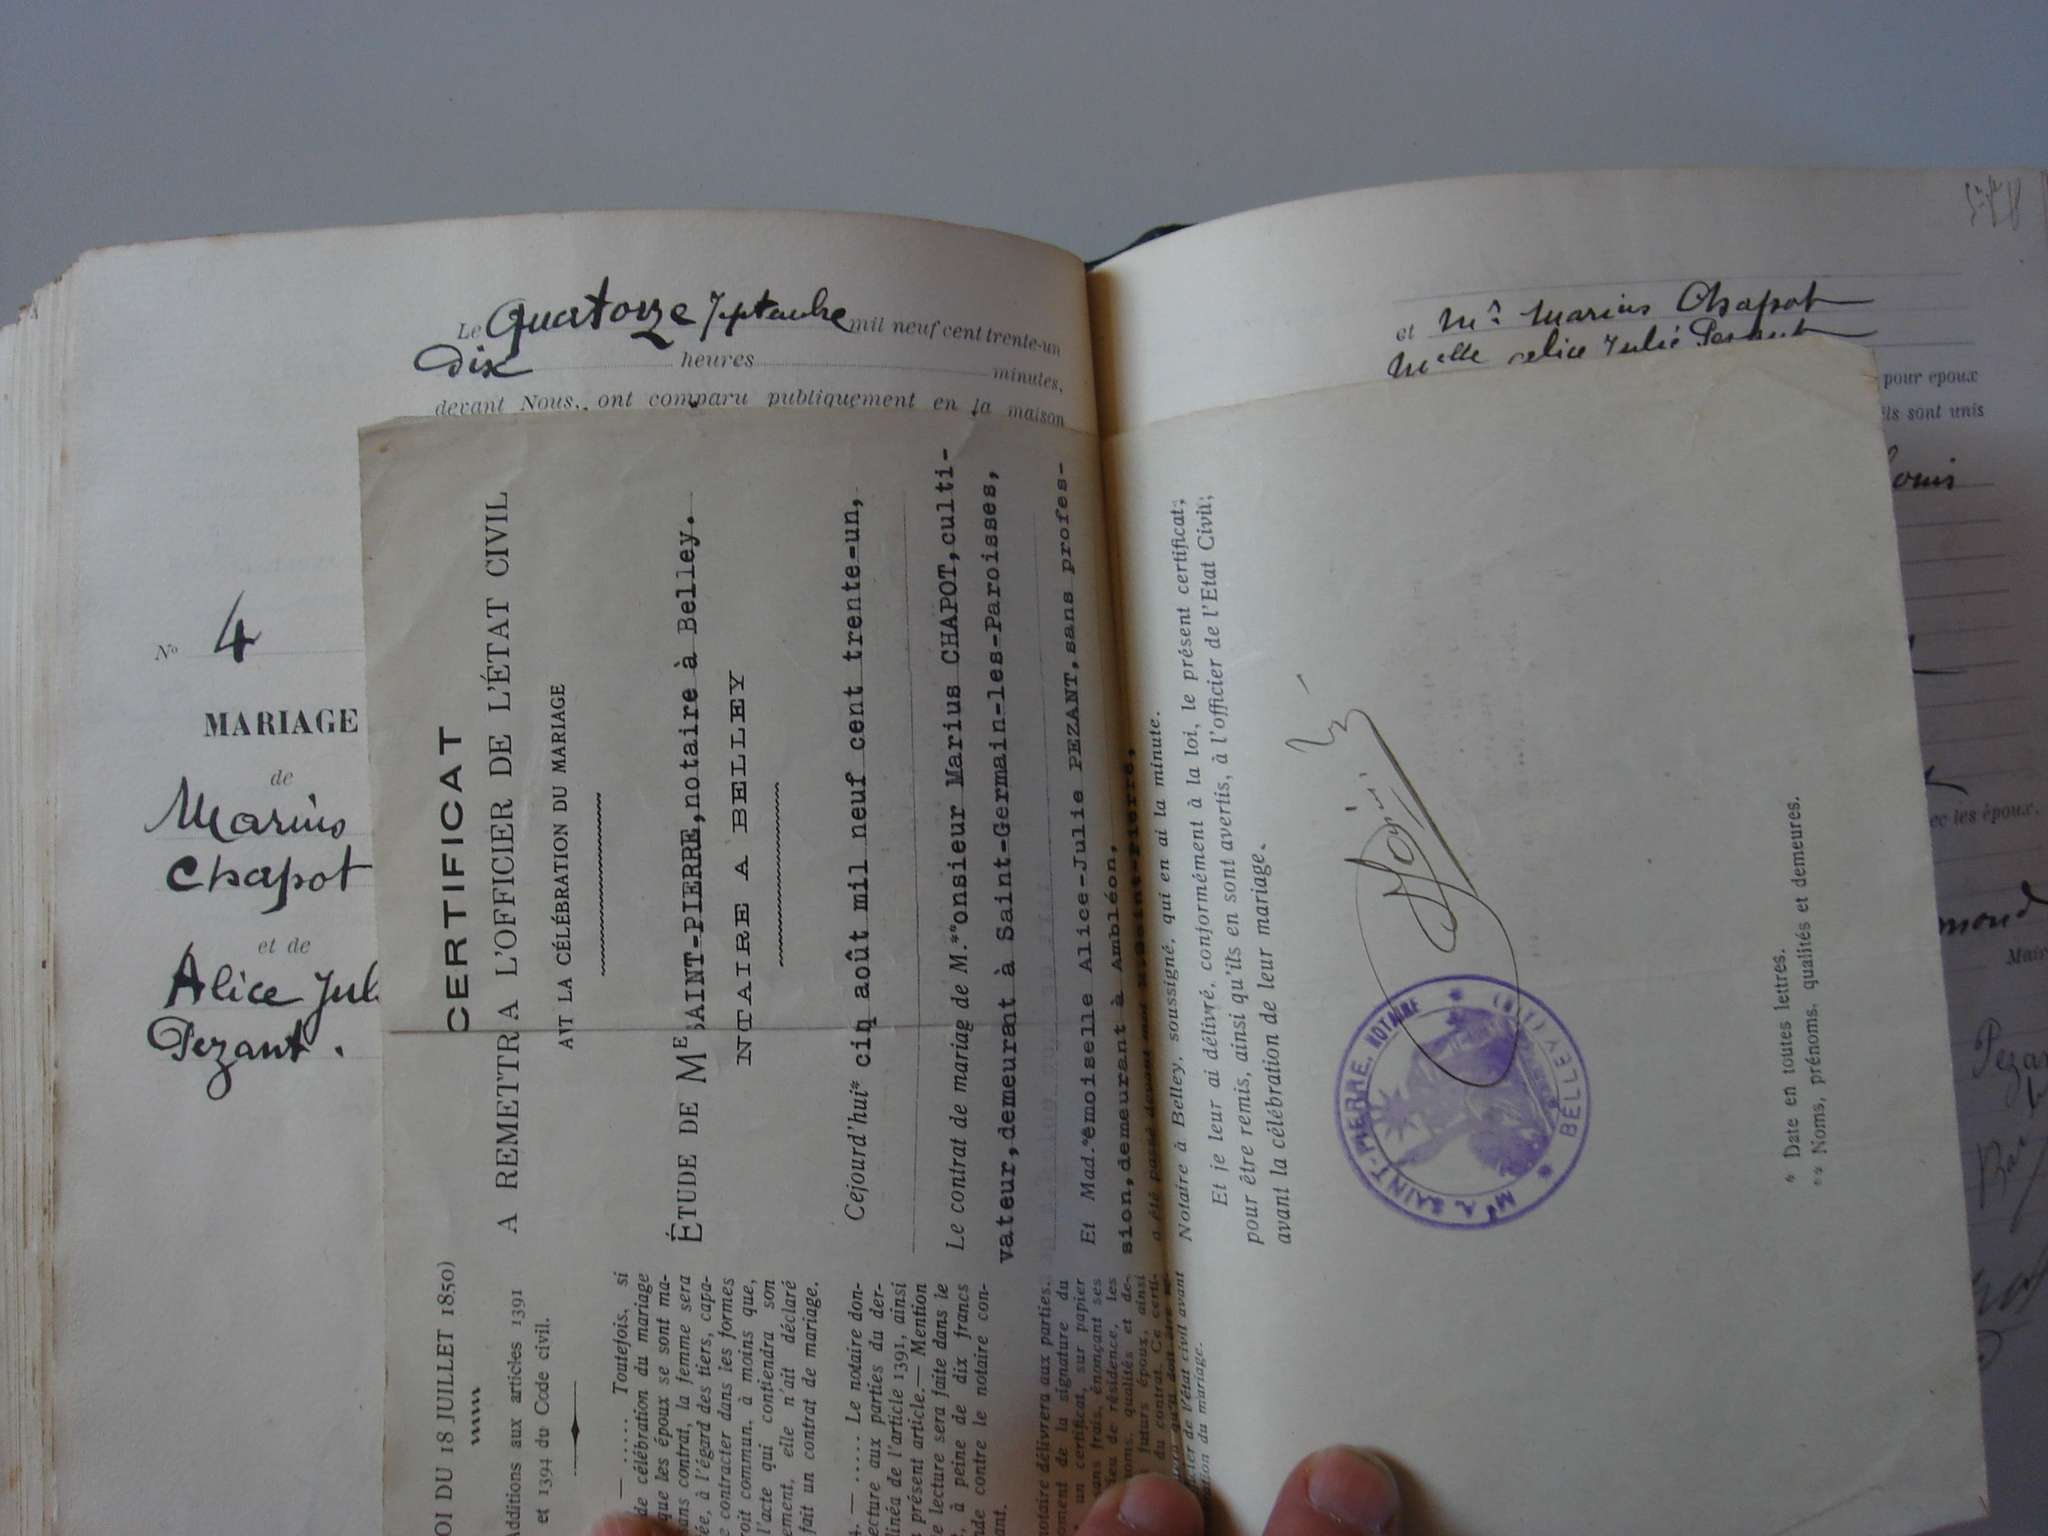 Le Quatorze 7ptembre mil neuf cent trente-un
Dix heures minutes,
devant Nous, ont comparu publiquement en la maison
No 4
MARIAGE
de
Marius
Chapot
et de
Alice Jul
Pezant.
et Mr Marius Chapot
Melle Alice Julie Pezant
pour époux
ils sont unis
Louis
ec les époux.
mond
Mair
Peza
CERTIFICAT
A REMETTR A L'OFFICIER DE L'ÉTAT CIVIL
ANT LA CÉLÉBRATION DU MARIAGE
ÉTUDE DE Me SAINT-PIERRE, notaire à Belley.
NTAIRE A BELLEY
Cejourd'hui* cinq août mil neuf cent trente-un,
Le contrat de mariag de M.**onsieur Marius CHAPOT, culti-
vateur, demeurant à Saint-Germain-les-Paroisses,
Et Mad.**emoiselle Alice-Julie PEZANT, sans profes-
sion, demeurant à Ambléon,
a été passé devant moi M. Saint-Pierre,
Notaire à Belley, soussigné, qui en ai la minute.
Et je leur ai délivré, conformément à la loi, le présent certificat,
pour être remis, ainsi qu'ils en sont avertis, à l'officier de l'Etat Civil,
avant la célébration de leur mariage.
Me A. SAINT-PIERRE, NOTAIRE
BELLEY (AIN)
* Date en toutes lettres.
** Noms, prénoms, qualités et demeures.
OI DU 18 JUILLET 1850)
Additions aux articles 1391
et 1394 du Code civil.
— ..... Toutefois, si
de célébration du mariage
que les époux se sont ma-
ans contrat, la femme sera
ée, à l'égard des tiers, capa-
e contracter dans les formes
roit commun, à moins que,
l'acte qui contiendra son
ement, elle n'ait déclaré
fait un contrat de mariage.
4. — ..... Le notaire don-
ecture aux parties du der-
linéa de l'article 1391, ainsi
u présent article. — Mention
e lecture sera faite dans le
, à peine de dix francs
nde contre le notaire con-
ant.
notaire délivrera aux parties,
oment de la signature du
un certificat, sur papier
sans frais, énonçant ses
lieu de résidence, les
noms, qualités et de-
futurs époux, ainsi
du contrat. Ce certi-
qu'il doit être re-
cier de l'état civil avant
ation du mariage.